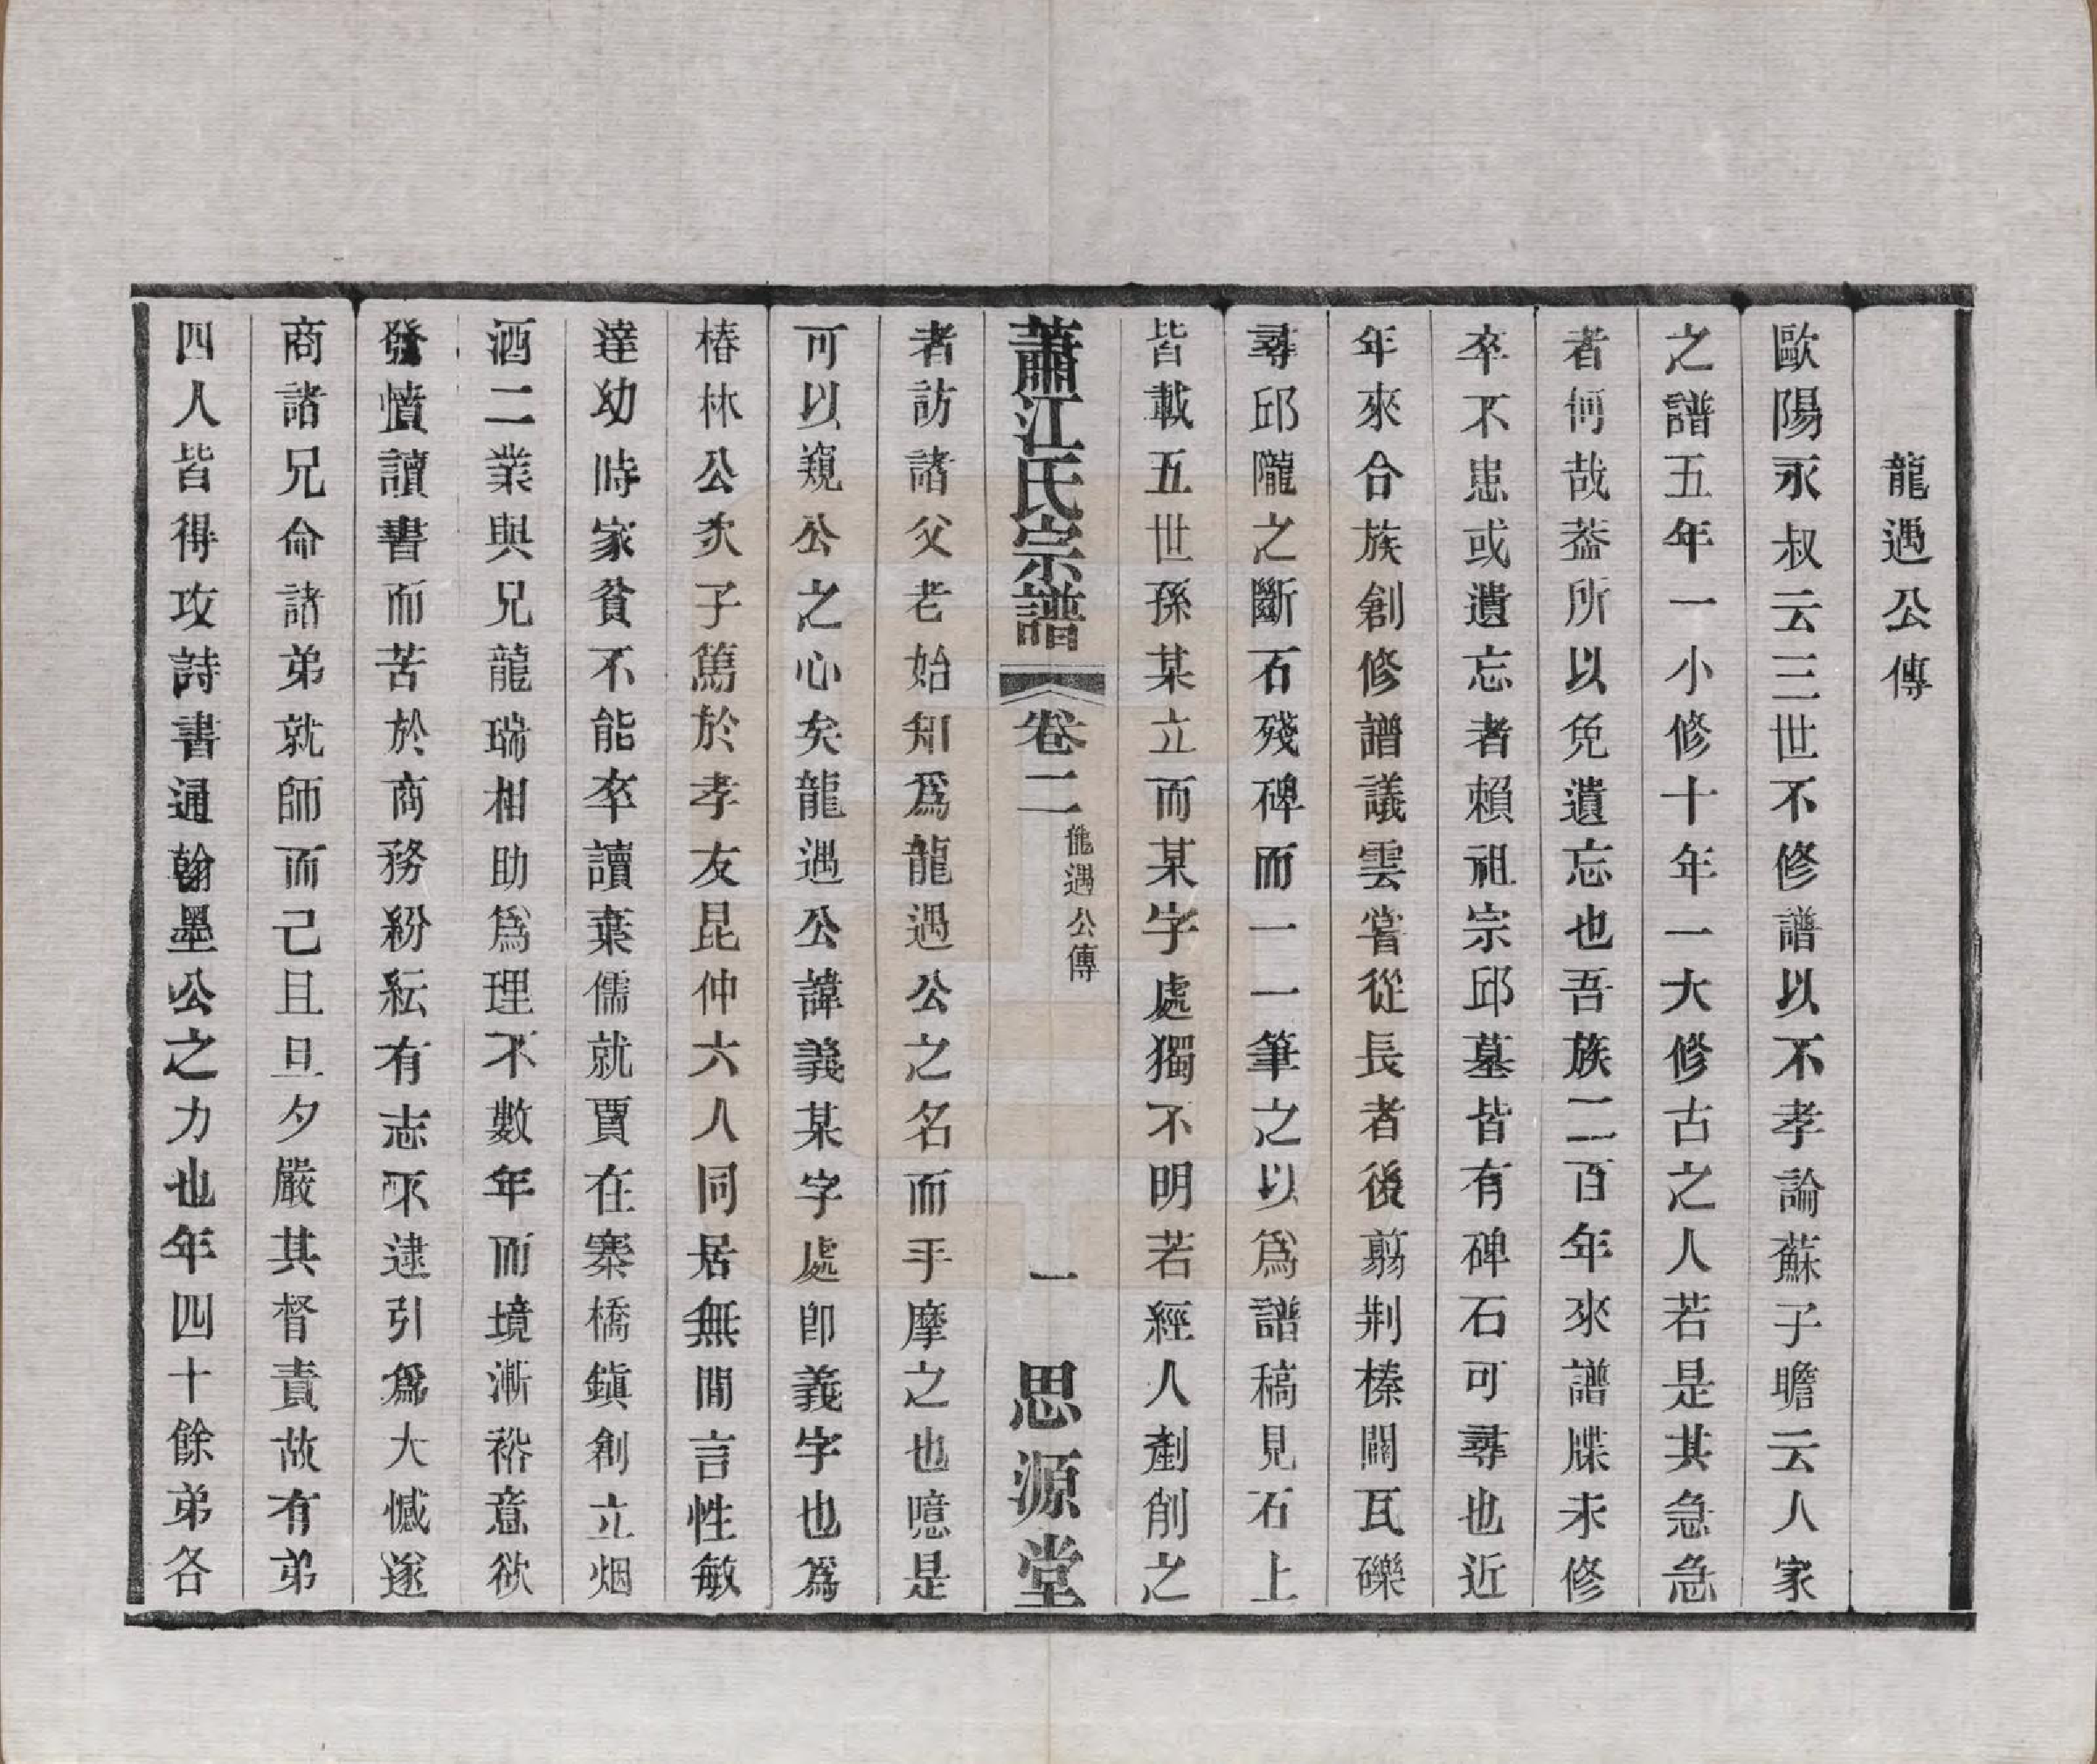 龍遇公傳
歐陽永叔云三世不修譜以不孝論蘇子瞻云人家
之譜五年一小修十年一大修古之人若是其急急
者何哉葢所以免遺忘也吾族二百年來譜牒未修
卒不患或遺忘者賴祖宗邱墓皆有碑石可尋也近
年來合族創修譜議雲嘗從長者後翦荆榛闢瓦礫
尋邱隴之斷石殘碑而一一筆之以爲譜稿見石上
皆載五世孫某立而某字處獨不明若經人剷削之
蕭江氏宗譜 卷二 龍遇公傳 一 思源堂
者訪諸父老始知爲龍遇公之名而手摩之也噫是
可以窺公之心矣龍遇公諱義某字處卽義字也爲
椿林公次子篤於孝友昆仲六人同居無閒言性敏
達幼時家貧不能卒讀棄儒就賈在寨橋鎮創立烟
酒二業與兄龍瑞相助爲理不數年而境漸裕意欲
發憤讀書而苦於商務紛紜有志不逮引爲大憾遂
商諸兄命諸弟就師而己且旦夕嚴其督責故有弟
四人皆得攻詩書通翰墨公之力也年四十餘弟各